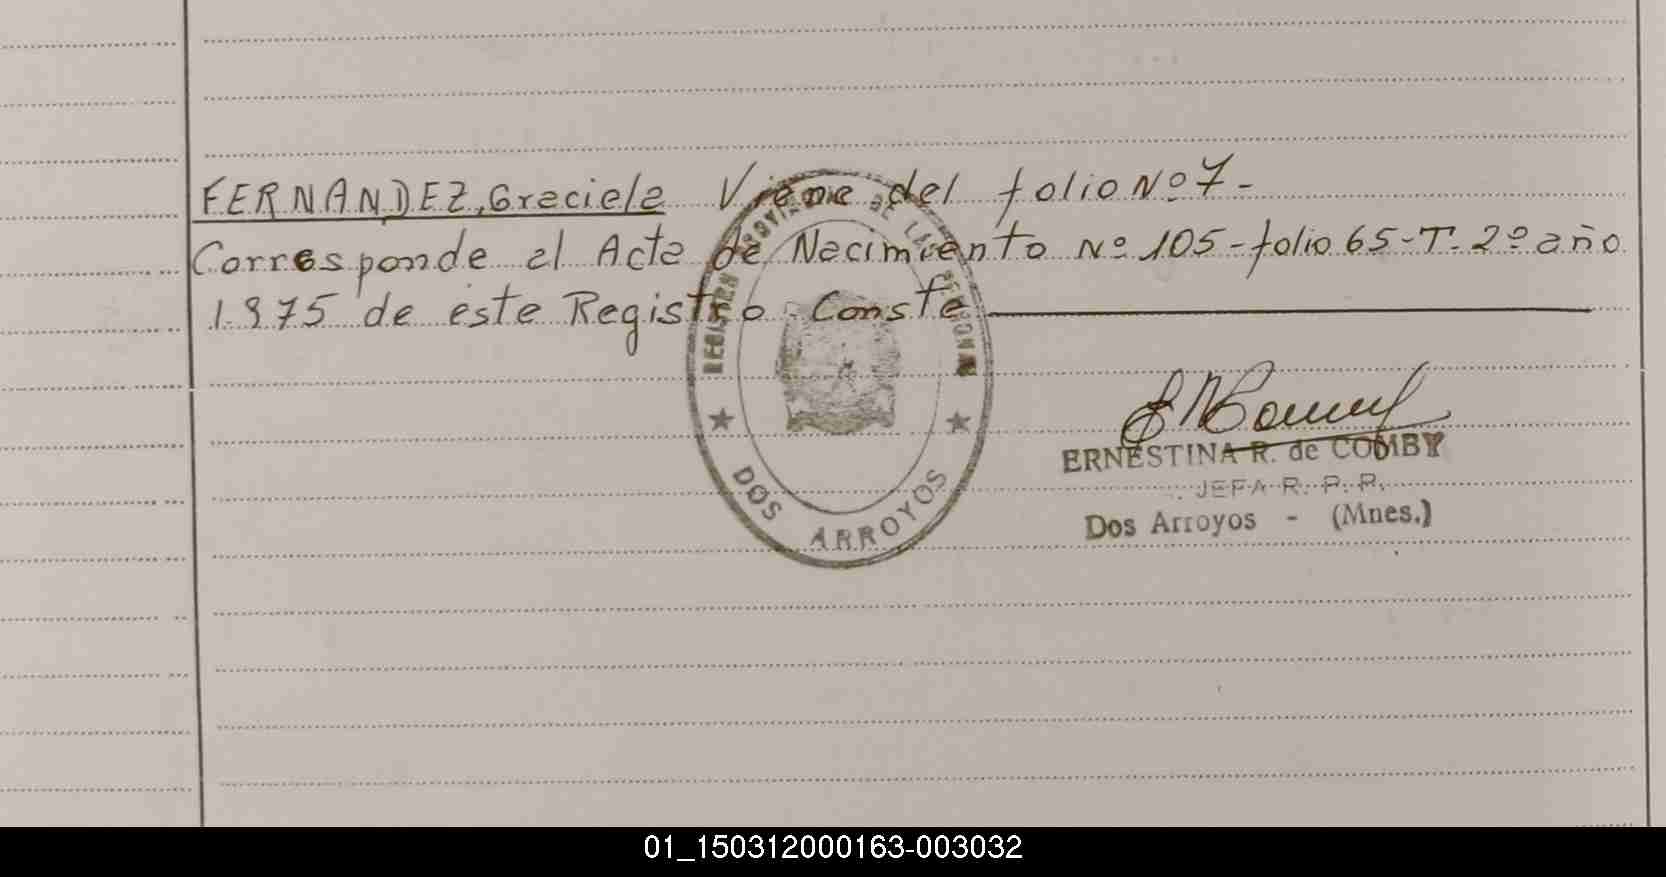 FERNANDEZ, Graciela Viene del folio Nº 7 -
Corresponde al Acta de Nacimiento Nº 105 - folio 65 - T. 2º año
1.975 de este Registro. Conste
REGISTRO PROVINCIAL DE LAS PERSONAS
★ DOS ARROYOS ★
ERNESTINA R. de COMBY
JEFA R. P. P.
Dos Arroyos - (Mnes.)
01_150312000163-003032